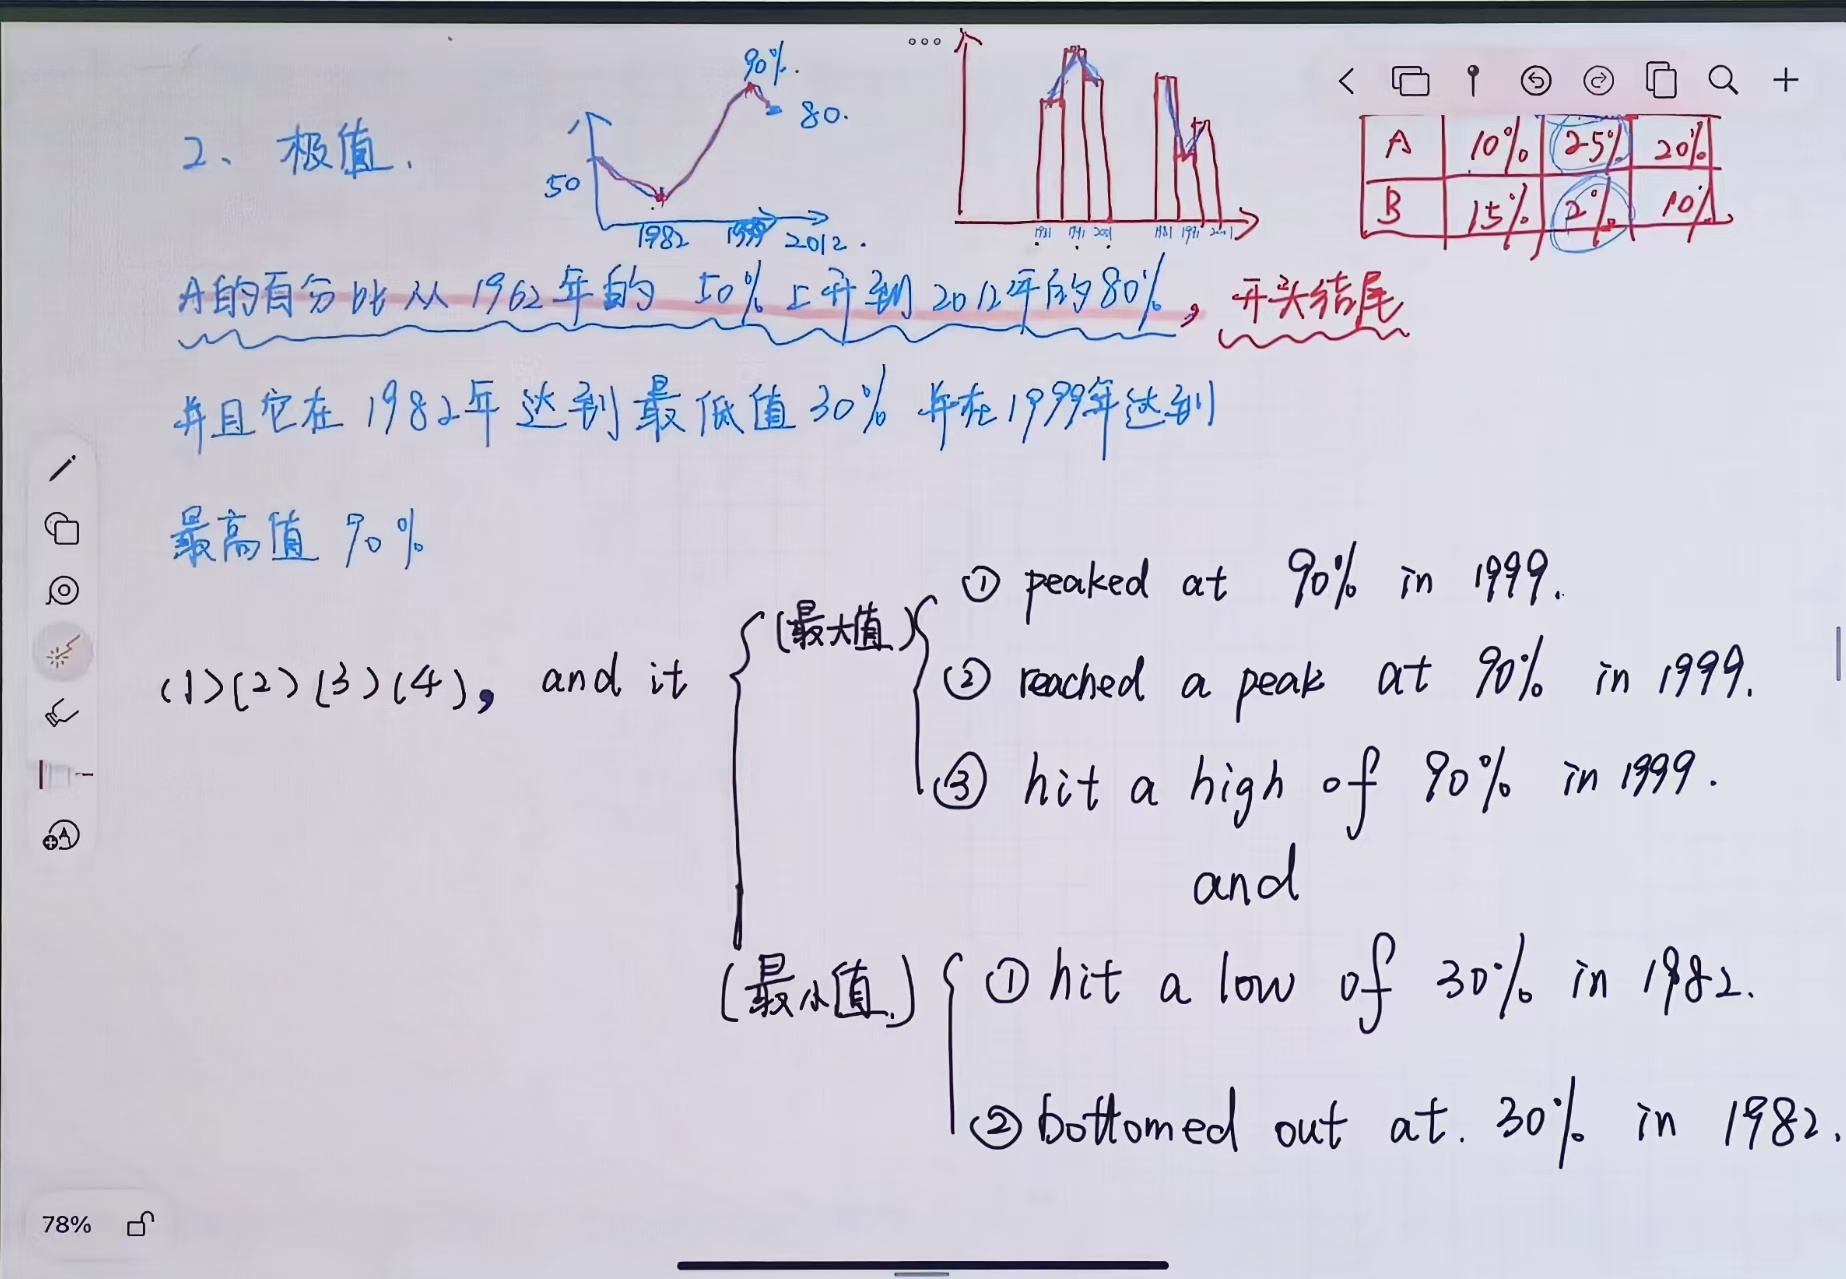 2、极值.
90%.
80.
50
1982 1999 2012.
1981 1991 2001 1981 1991 2001
A 10% 25% 20%
B 15% 2% 10%
A的百分比从1962年的 50%上升到2012年的80%, 开头结尾
并且它在1982年达到最低值30% 并在1999年达到
最高值 90%
(1)(2)(3)(4), and it
(最大值)
① peaked at 90% in 1999.
② reached a peak at 90% in 1999.
③ hit a high of 90% in 1999.
and
(最小值.)
① hit a low of 30% in 1982.
② bottomed out at. 30% in 1982.
78%